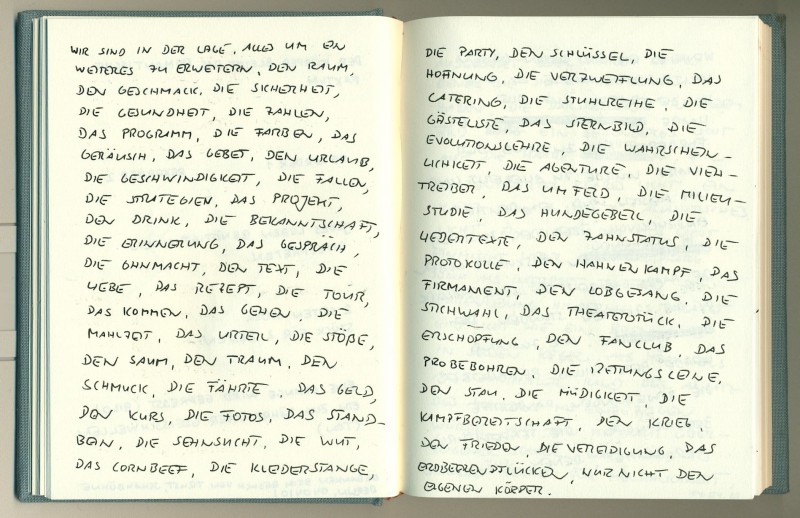 WIR SIND IN DER LAGE, ALLES UM EIN
WEITERES ZU ERWEITERN, DEN RAUM,
DEN GESCHMACK, DIE SICHERHEIT,
DIE GESUNDHEIT, DIE ZAHLEN,
DAS PROGRAMM, DIE FARBEN, DAS
GERÄUSCH, DAS GEBET, DEN URLAUB,
DIE GESCHWINDIGKEIT, DIE FALLEN,
DIE STRATEGIEN, DAS PROJEKT,
DEN DRINK, DIE BEKANNTSCHAFT,
DIE ERINNERUNG, DAS GESPRÄCH,
DIE OHNMACHT, DEN TEXT, DIE
LIEBE, DAS REZEPT, DIE TOUR,
DAS KOMMEN, DAS GEHEN, DIE
MAHLZEIT, DAS URTEIL, DIE STÖßE,
DEN SAUM, DEN TRAUM, DEN
SCHMUCK, DIE FÄHRTE, DAS GELD,
DEN KURS, DIE FOTOS, DAS STAND-
BEIN, DIE SEHNSUCHT, DIE WUT,
DAS CORNBEEF, DIE KLEIDERSTANGE,
DIE PARTY, DEN SCHLÜSSEL, DIE
HOFFNUNG, DIE VERZWEIFLUNG, DAS
CATERING, DIE STUHLREIHE, DIE
GÄSTELISTE, DAS STERNBILD, DIE
EVOLUTIONSLEHRE, DIE WAHRSCHEIN-
LICHKEIT, DIE AGENTURE, DIE VIEH-
TREIBER, DAS UMFELD, DIE MILIEU-
STUDIE, DAS HUNDEGEBELL, DIE
LIEDERTEXTE, DEN ZAHNSTATUS, DIE
PROTOKOLLE, DEN HAHNENKAMPF, DAS
FIRMAMENT, DEN LOBGESANG, DIE
STICHWAHL, DAS THEATERSTÜCK, DIE
ERSCHÖPFUNG, DEN FANCLUB, DAS
PROBEBOHREN, DIE RETTUNGSLEINE,
DEN STAU, DIE MÜDIGKEIT, DIE
KAMPFBEREITSCHAFT, DEN KRIEG,
DEN FRIEDEN, DIE VEREIDIGUNG, DAS
ERDBEERENPFLÜCKEN, NUR NICHT DEN
EIGENEN KÖRPER.